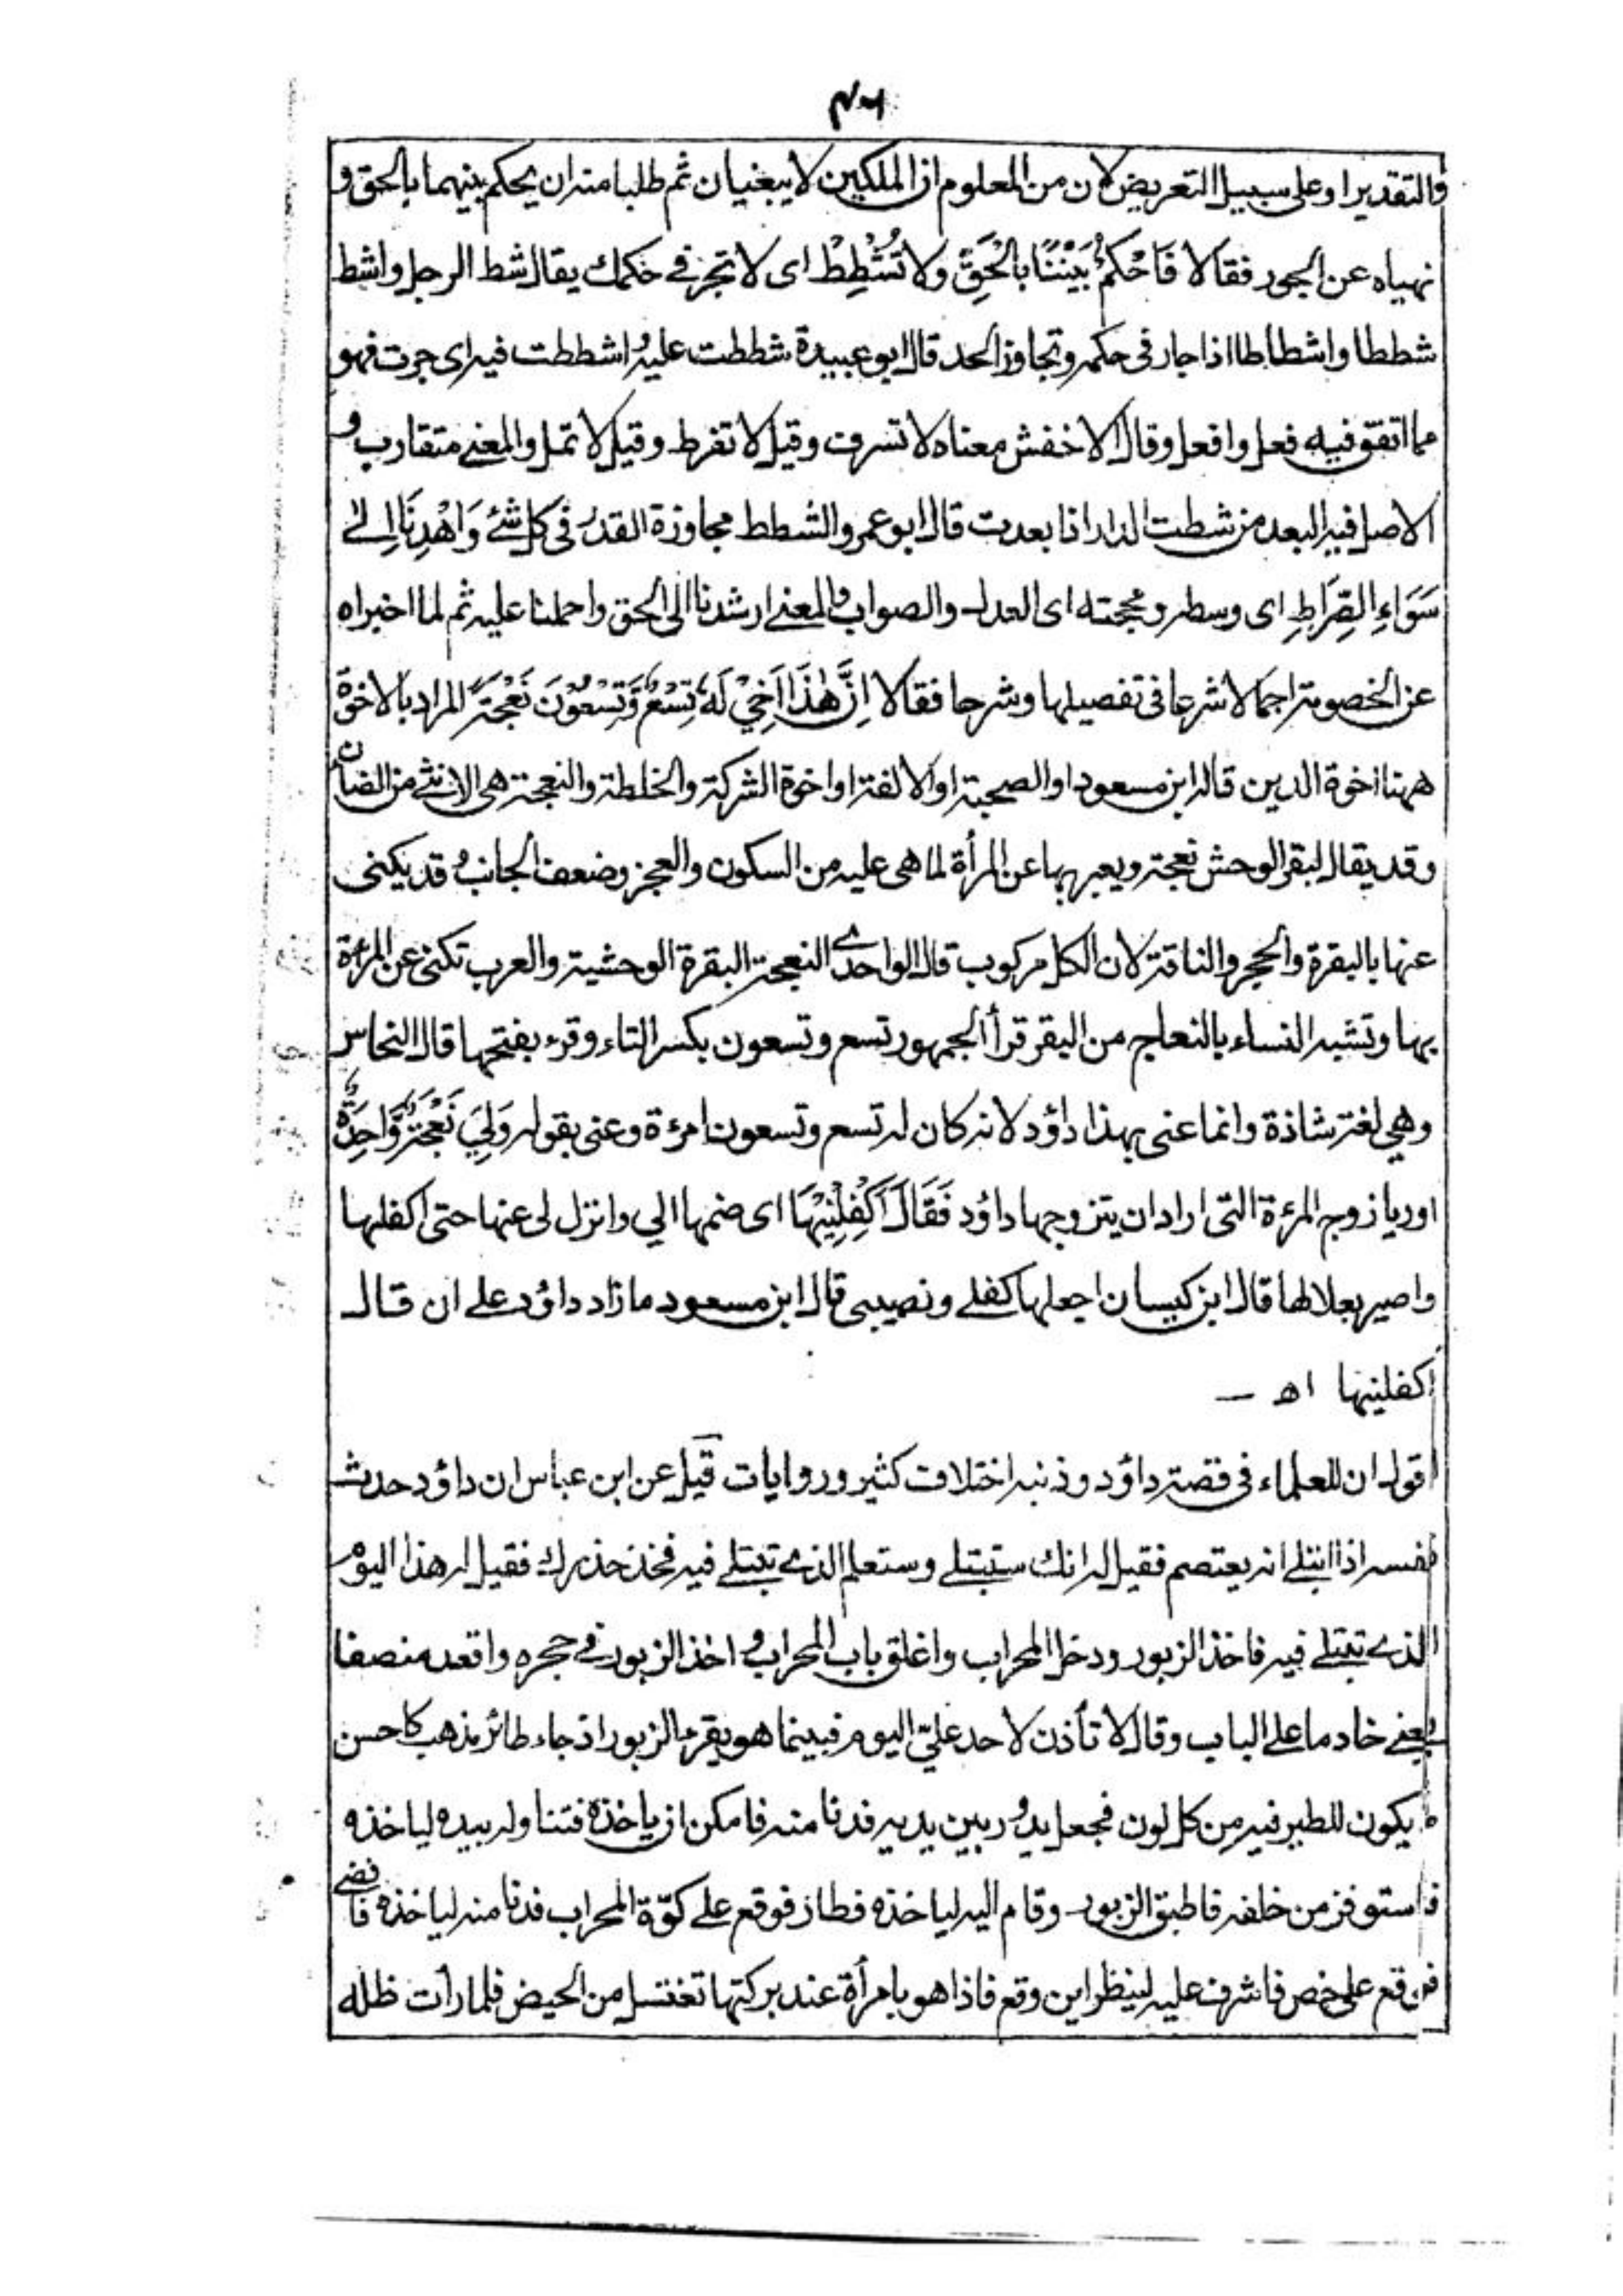 والتقدير او على سبيل التعريض لان من المعلوم ان الملكين لا يبغيان ثم طلبا منه ان يحكم بينهما بالحق و
نهياه عن الجور فقالا فَاحْكُمْ بَيْنَنَا بِالْحَقِّ وَلَا تُشْطِطْ اى لا تجر في حكمك يقال شط الرجل واشط
شططا واشطاطا اذا جار فى حكمه وتجاوز الحد قال ابو عبيدة شططت عليه واشططت فيه اى جرت فهو
مما اتفق فيه فعل وافعل وقال الاخفش معناه لا تسرف وقيل لا تفرط وقيل لا تمل والمعنى متقارب و
الاصل فيه البعد من شطت الدار اذا بعدت قال ابو عمرو الشطط مجاوزة القدر فى كل شئ وَاهْدِنَا اِلٰى
سَوَاءِ الصِّرَاطِ اى وسطه ومحجته اى العدل والصواب والمعنى ارشدنا الى الحق واحملنا عليه ثم لما اخبراه
عن الخصومة اجمالا شرعا فى تفصيلها وشرحا فقالا اِنَّ هٰذَا اَخِيْ لَهٗ تِسْعٌ وَّتِسْعُوْنَ نَعْجَةً المراد بالاخوة
ههنا اخوة الدين قاله ابن مسعود او الصحبة او الالفة او اخوة الشركة والخلطة والنعجة هى الانثى من الضان
وقد يقال لبقر الوحش نعجة ويعبر بها عن المرأة لما هى عليه من السكون والعجز وضعف الجانب وقد يكنى
عنها بالبقرة والحجر والناقة لان الكل مركوب قال الواحدى النعجة البقرة الوحشية والعرب تكنى عن المرءة
بها وتشبه النساء بالنعاج من البقر قرأ الجمهور تسع وتسعون بكسر التاء وقرء بفتحها قال النحاس
وهي لغة شاذة وانما عنى بهذا داؤد لانه كان له تسع وتسعون امرءة وعنى بقوله وَلِيَ نَعْجَةٌ وَّاحِدَةٌ
اوريا زوج المرءة التى اراد ان يتزوجها داؤد فَقَالَ اَكْفِلْنِيْهَا اى ضمها الي وانزل لى عنها حتى اكفلها
واصير بعلا لها قال ابن كيسان اجعلها كفلى ونصيبى قال ابن مسعود ما زاد داؤد على ان قال
اكفلنيها اه —
اقول ان للعلماء فى قصة داؤد وذنبه اختلاف كثير وروايات قيل عن ابن عباس ان داؤد حدث
نفسه اذا ابتلى انه يعتصم فقيل له انك ستبتلى وستعلم الذى تبتلى فيه فخذ حذرك فقيل له هذا اليوم
الذى تبتلى فيه فاخذ الزبور ودخل المحراب واغلق باب المحراب واخذ الزبور فى حجره واقعد منصفا
يعنى خادما على الباب وقال لا تأذن لاحد علىّ اليوم فبينما هو يقرء الزبور اذ جاء طائر مذهب كاحسن
ما يكون للطير فيه من كل لون فجعل يدور بين يديه فدنا منه فامكن ان ياخذه فتناوله بيده لياخذه
فاستوفز من خلفه فاطبق الزبور وقام اليه لياخذه فطار فوقع على كوّة المحراب فدنا منه لياخذه فافضى
فوقع على خص فاشرف عليه لينظر اين وقع فاذا هو بامرأة عند بركتها تغتسل من الحيض فلما رأت ظله